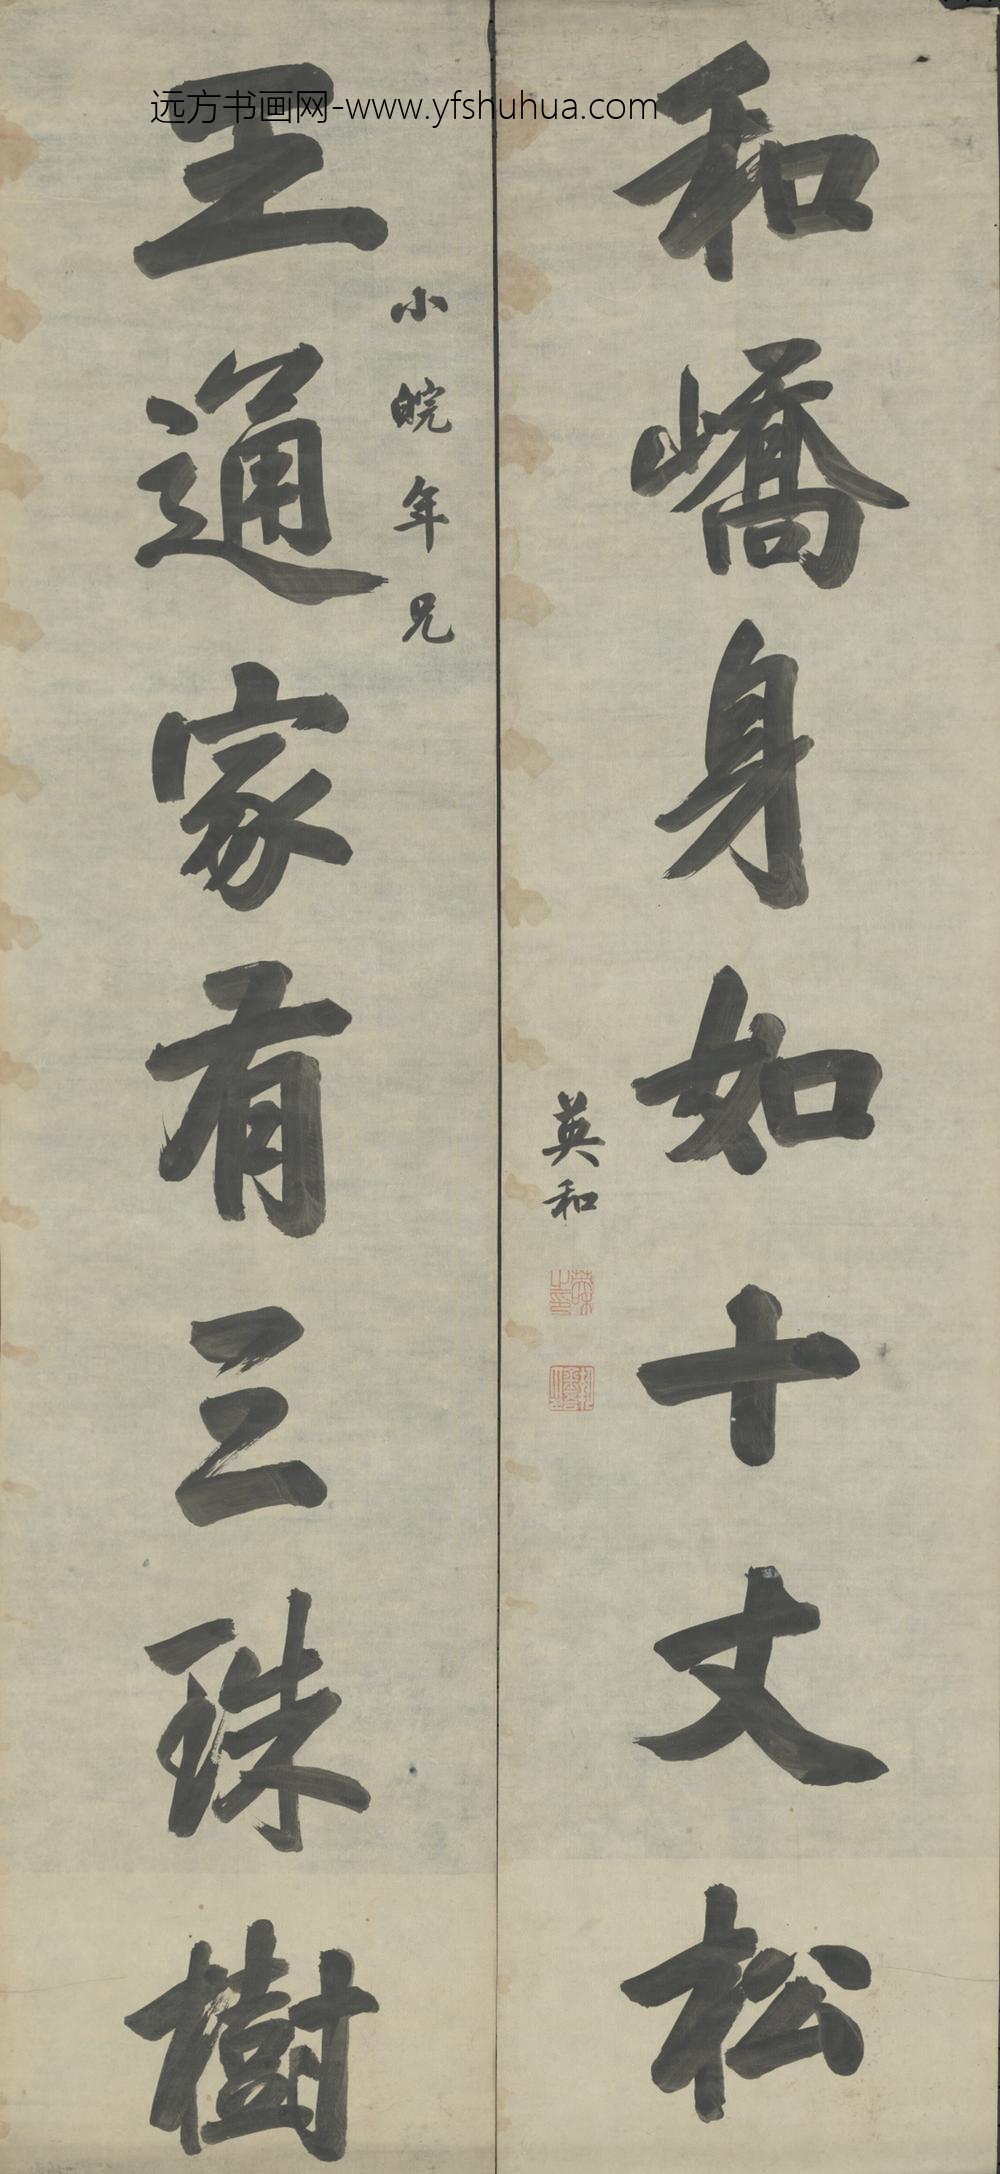 远方书画网-www.yfshuhua.com
和嶠身如十丈松
英和
王通家有三珠樹
小皖年兄